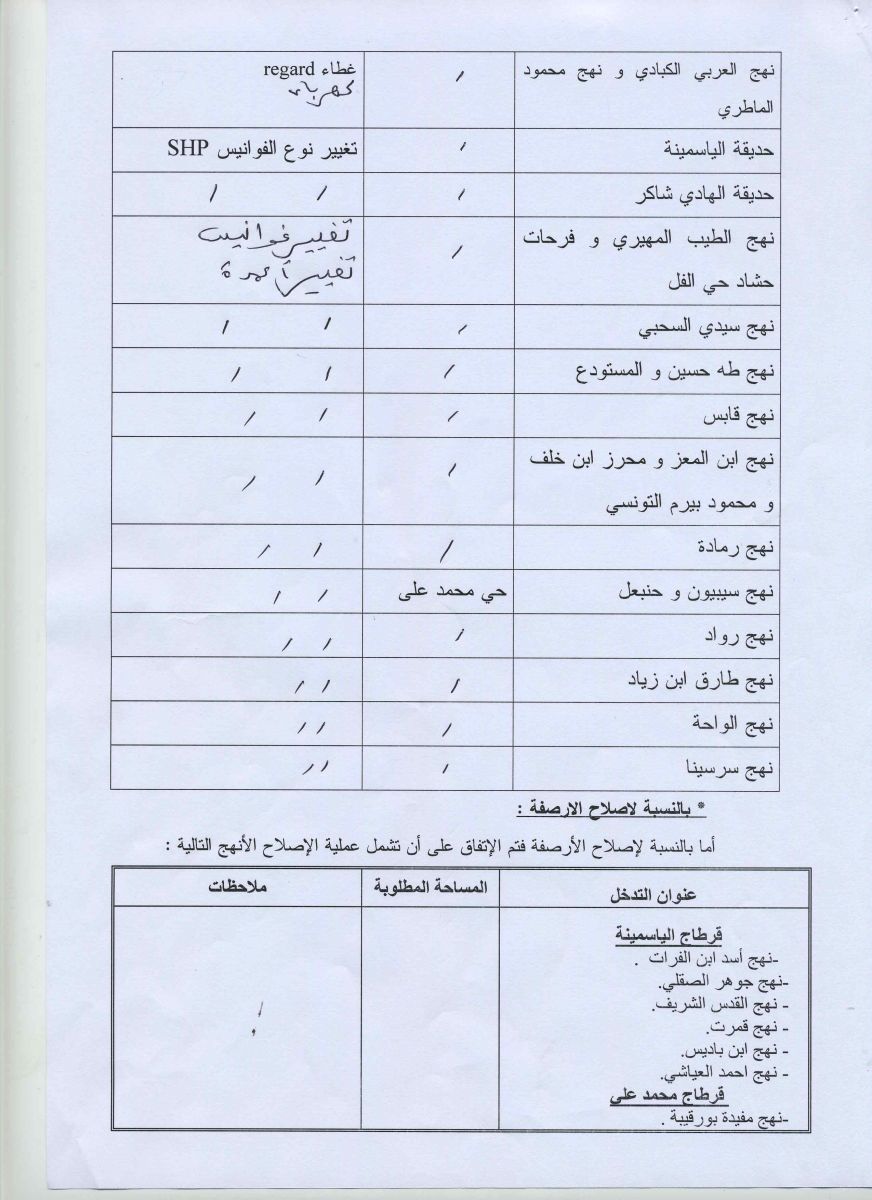 نهج العربي الكبادي و نهج محمود / غطاء regard
الماطري كهرباء
حديقة الياسمينة / تغيير نوع الفوانيس SHP
حديقة الهادي شاكر / / /
نهج الطيب المهيري و فرحات / تغيير فوانيس
حشاد حي الفل تغيير أعمدة
نهج سيدي السحبي / / /
نهج طه حسين و المستودع / / /
نهج قابس / / /
نهج ابن المعز و محرز ابن خلف / / /
و محمود بيرم التونسي
نهج رمادة / / /
نهج سيبيون و حنبعل حي محمد على / /
نهج رواد / / /
نهج طارق ابن زياد / / /
نهج الواحة / / /
نهج سرسينا / / /
* بالنسبة لاصلاح الارصفة :
أما بالنسبة لإصلاح الأرصفة فتم الإتفاق على أن تشمل عملية الإصلاح الأنهج التالية :
عنوان التدخل المساحة المطلوبة ملاحظات
قرطاج الياسمينة
-نهج أسد ابن الفرات .
-نهج جوهر الصقلي.
- نهج القدس الشريف.
- نهج قمرت.
- نهج ابن باديس.
- نهج احمد العياشي.
قرطاج محمد علي
-نهج مفيدة بورقيبة .